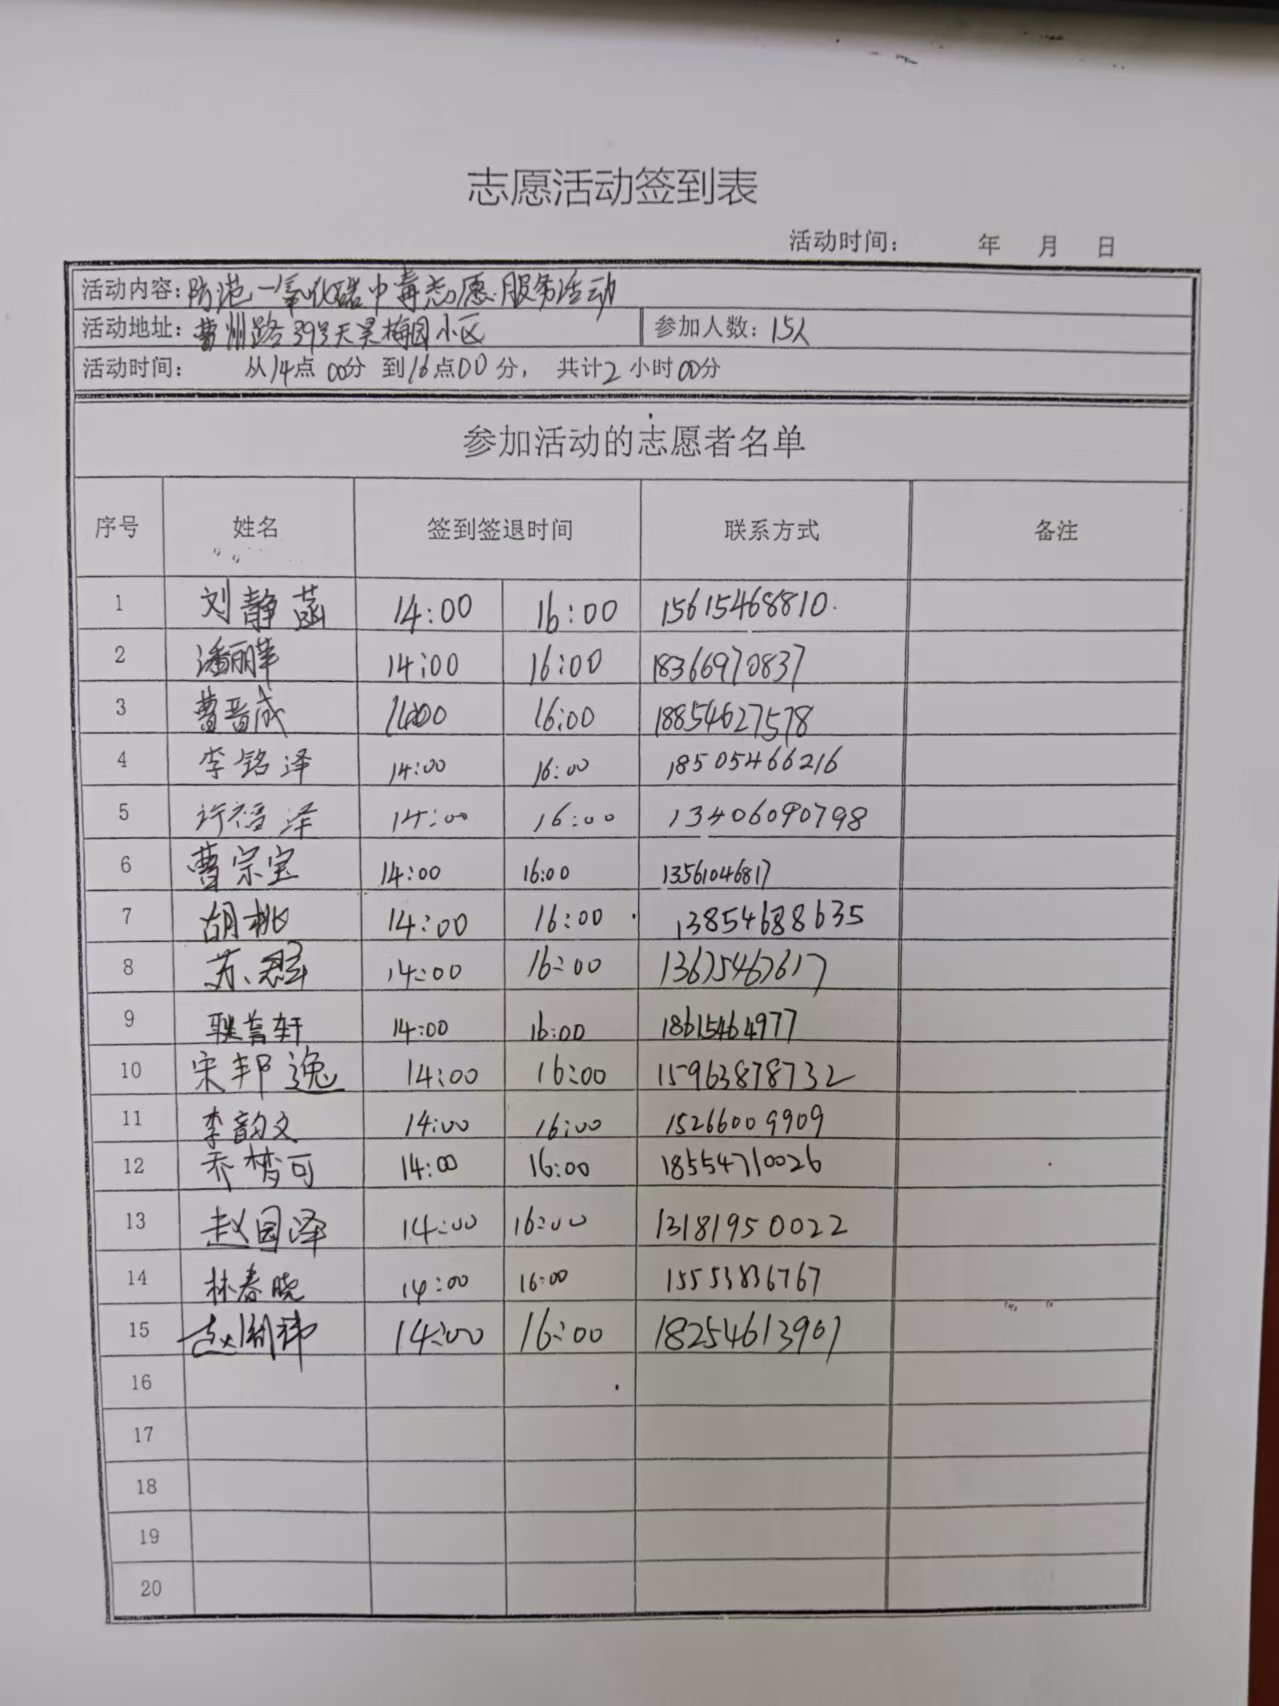 志愿活动签到表
活动时间： 年 月 日
活动内容：防范一氧化碳中毒志愿服务活动
活动地址：曹州路39号天昊梅园小区 参加人数：15人
活动时间： 从14点00分 到16点00分， 共计2小时00分
参加活动的志愿者名单
序号 姓名 签到签退时间 联系方式 备注
1 刘静菡 14:00 16:00 15615468810
2 潘丽苹 14:00 16:00 18366970837
3 曹晋成 16:00 18854627578
4 李铭泽 14:00 16:00 18505466216
5 14:00 16:00 13406090798
6 曹宗宝 14:00 16:00 13561046817
7 胡桃 14:00 16:00 13854688635
8 14:00 16:00 13675467617
9 14:00 16:00 18615464977
10 宋邦逸 14:00 16:00 15963878732
11 李韵文 14:00 16:00 15266009909
12 乔梦可 14:00 16:00 18554710026
13 赵国泽 14:00 16:00 13181950022
14 林春晓 14:00 16:00 15553836767
15 14:00 16:00 18254613907
16
17
18
19
20